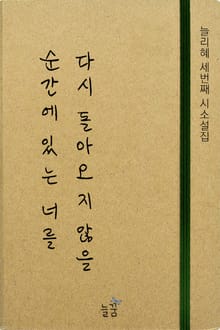 늘리혜 세번째 시소설집
다시 돌아오지 않을
순간에 있는 너를
늘꿈